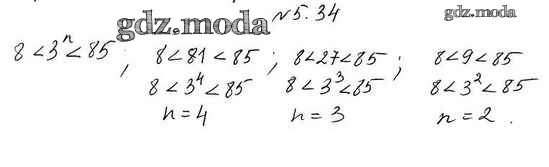 №5.34
gdz.moda
gdz.moda
8 < 3ⁿ < 85 ; 8 < 81 < 85 ; 8 < 27 < 85 ; 8 < 9 < 85
8 < 3⁴ < 85 8 < 3³ < 85 8 < 3² < 85
n = 4 n = 3 n = 2 .